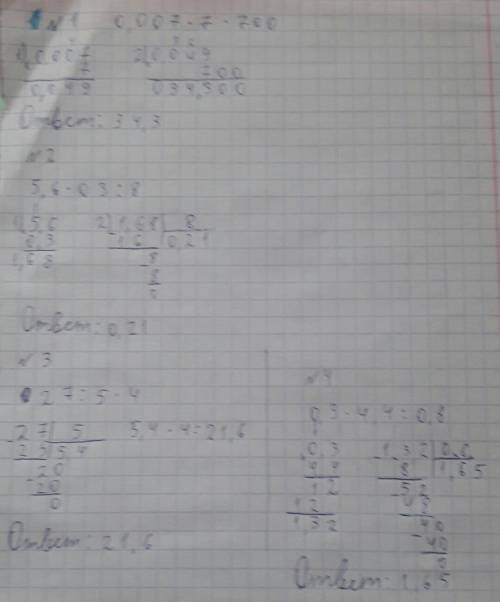 №1 0,007·7·700
1) 0,007 2) 0,049
7 700
0,049 034,300
Ответ: 34,3
№2
5,6·0,3:8
1) 5,6 2) 1,68 | 8
0,3 1 6 0,21
1,68 8
8
0
Ответ: 0,21
№3
27:5·4
27 | 5 5,4·4=21,6
25 5,4
20
20
0
Ответ: 21,6
№4
0,3·4,4:0,8
0,3 1,32 | 0,8
4,4 8 1,65
12 52
12 48
1,32 40
40
0
Ответ: 1,65